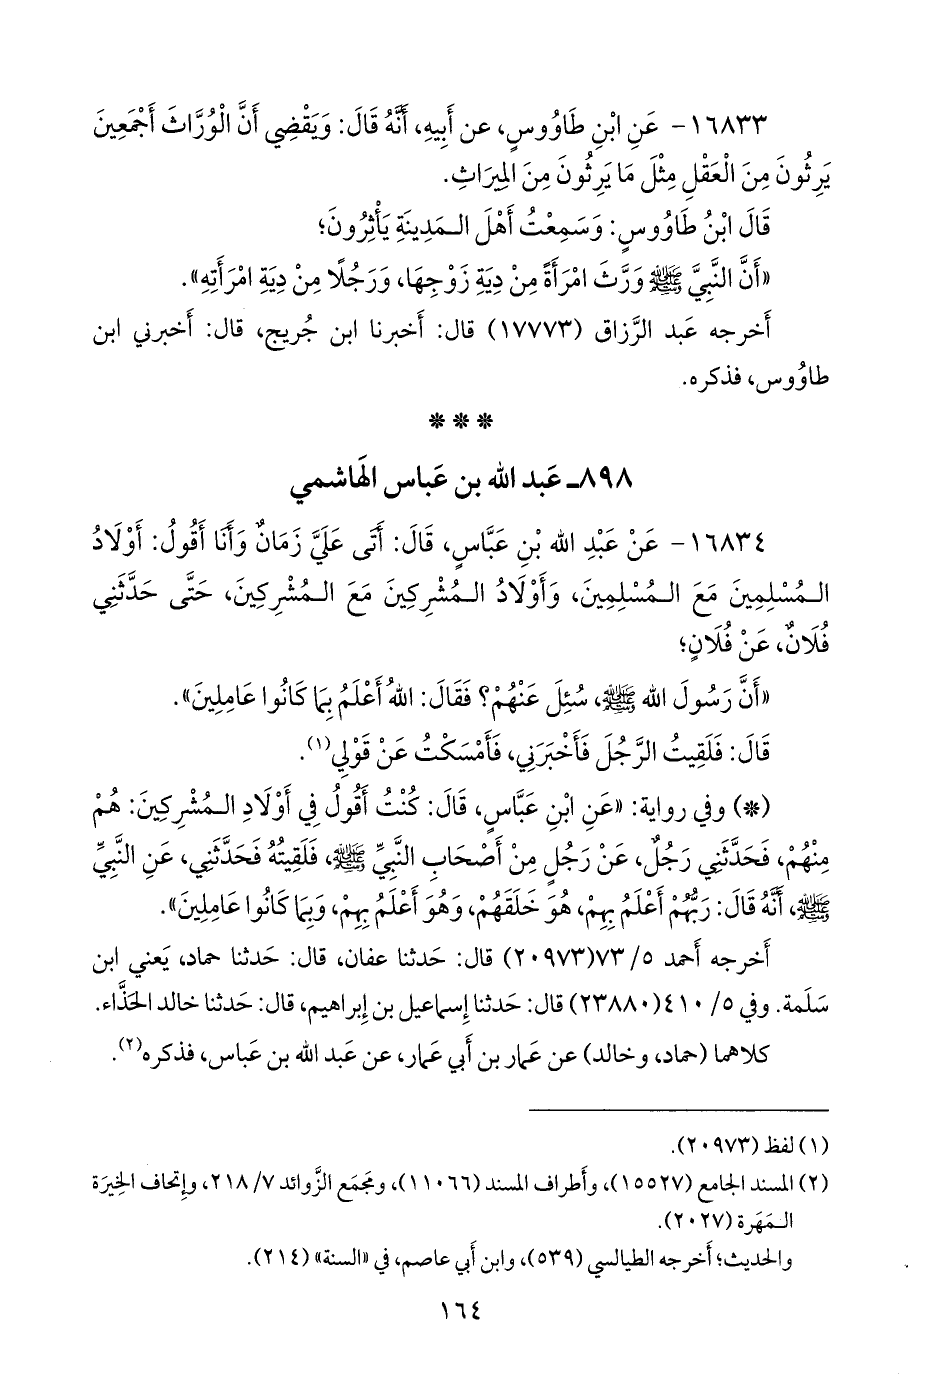 ١٦٨٣٣- عَنِ ابْنِ طَاوُوسٍ، عن أَبِيهِ، أَنَّهُ قَالَ: وَيَقْضِي أَنَّ الْوُرَّاثَ أَجْمَعِينَ
يَرِثُونَ مِنَ الْعَقْلِ مِثْلَ مَا يَرِثُونَ مِنَ المِيرَاثِ.
قَالَ ابْنُ طَاوُوسٍ: وَسَمِعْتُ أَهْلَ الـمَدِينَةِ يَأْثِرُونَ؛
«أَنَّ النَّبِيَّ ﷺ وَرَّثَ امْرَأَةً مِنْ دِيَةِ زَوْجِهَا، وَرَجُلًا مِنْ دِيَةِ امْرَأَتِهِ».
أَخرجه عَبد الرَّزاق (١٧٧٧٣) قال: أَخبرنا ابن جُريج، قال: أَخبرني ابن
طاوُوس، فذكره.
* * *
٨٩٨ـ عَبد الله بن عَباس الهَاشمي
١٦٨٣٤- عَنْ عَبْدِ الله بْنِ عَبَّاسٍ، قَالَ: أَتَى عَلَيَّ زَمَانٌ وَأَنَا أَقُولُ: أَوْلَادُ
الـمُسْلِمِينَ مَعَ الـمُسْلِمِينَ، وَأَوْلَادُ الـمُشْرِكِينَ مَعَ الـمُشْرِكِينَ، حَتَّى حَدَّثَنِي
فُلَانٌ، عَنْ فُلَانٍ؛
«أَنَّ رَسُولَ الله ﷺ، سُئِلَ عَنْهُمْ؟ فَقَالَ: اللهُ أَعْلَمُ بِمَا كَانُوا عَامِلِينَ».
قَالَ: فَلَقِيتُ الرَّجُلَ فَأَخْبَرَنِي، فَأَمْسَكْتُ عَنْ قَوْلِي(١).
(*) وفي رواية: «عَنِ ابْنِ عَبَّاسٍ، قَالَ: كُنْتُ أَقُولُ فِي أَوْلَادِ الـمُشْرِكِينَ: هُمْ
مِنْهُمْ، فَحَدَّثَنِي رَجُلٌ، عَنْ رَجُلٍ مِنْ أَصْحَابِ النَّبِيِّ ﷺ، فَلَقِيتُهُ فَحَدَّثَنِي، عَنِ النَّبِيِّ
ﷺ، أَنَّهُ قَالَ: رَبُّهُمْ أَعْلَمُ بِهِمْ، هُوَ خَلَقَهُمْ، وَهُوَ أَعْلَمُ بِهِمْ، وَبِمَا كَانُوا عَامِلِينَ».
أَخرجه أَحمد ٥/ ٧٣(٢٠٩٧٣) قال: حَدثنا عفان، قال: حَدثنا حماد، يَعني ابن
سَلَمة. وفي ٥/ ٤١٠(٢٣٨٨٠) قال: حَدثنا إِسماعيل بن إِبراهيم، قال: حَدثنا خالد الحَذَّاء.
كلاهما (حماد، وخالد) عن عَمار بن أَبي عمار، عن عَبد الله بن عَباس، فذكره(٢).
(١) لفظ (٢٠٩٧٣).
(٢) المسند الجامع (١٥٥٢٧)، وأَطراف المسند (١١٠٦٦)، ومَجمَع الزَّوائد ٧/ ٢١٨، وإِتحاف الخِيرَة
الـمَهَرة (٢٠٢٧).
والحديث؛ أَخرجه الطيالسي (٥٣٩)، وابن أَبي عاصم، في «السنة» (٢١٤).
١٦٤